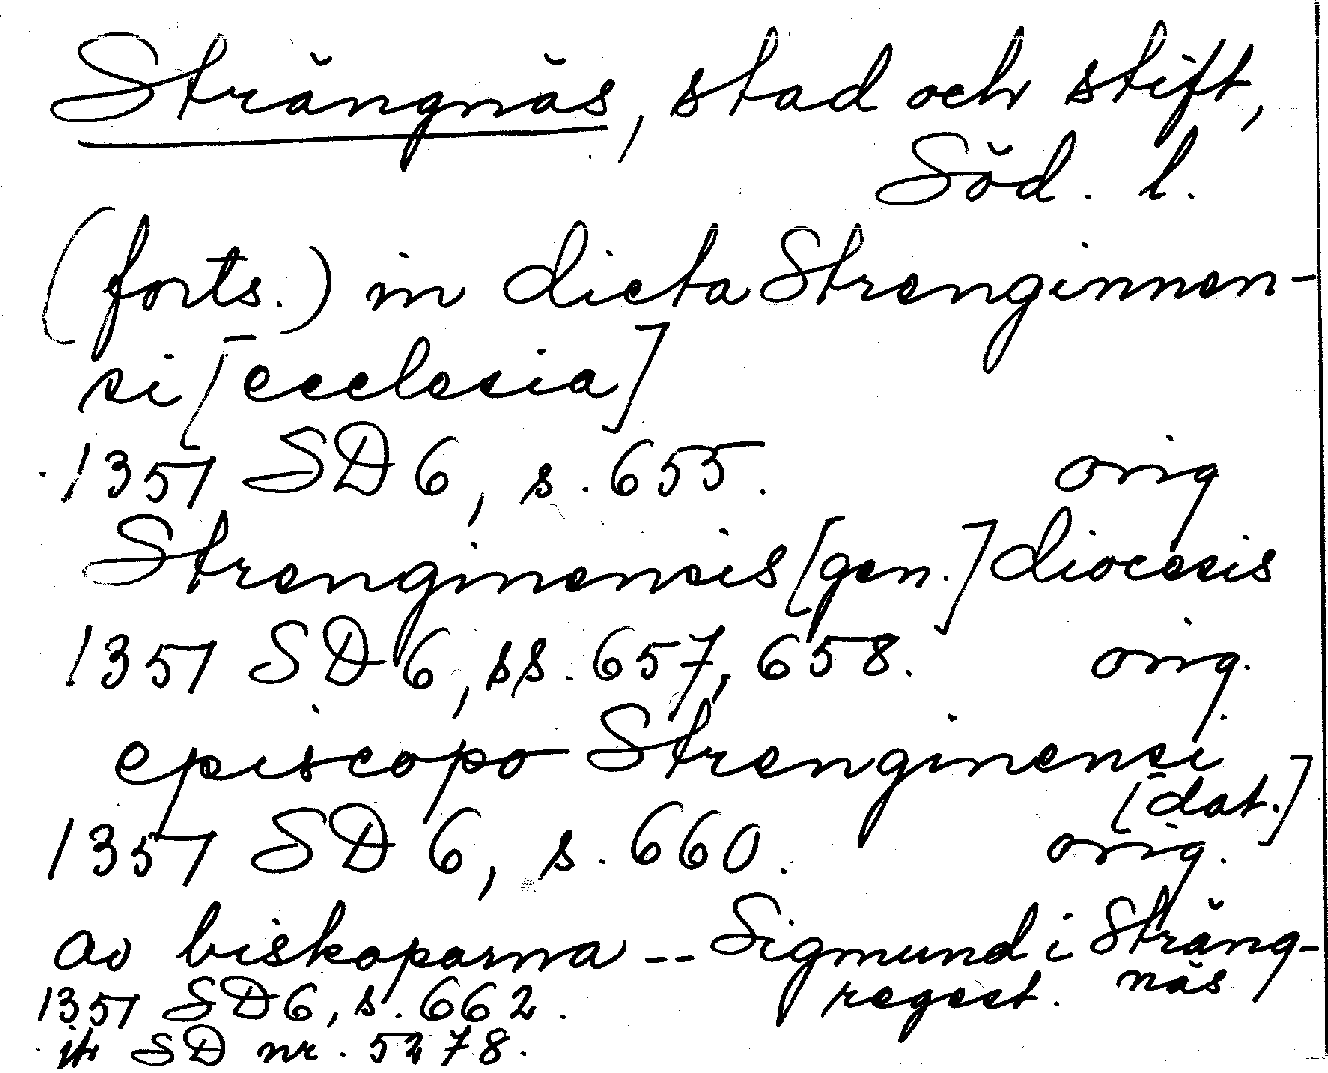 Strängnäs, stad och stift,
Söd. l.
(forts.) in dicta Strenginnen-
si [ecclesia]
1357 SD 6, s. 655. orig
Strenginensis [gen.] diocesis
1357 SD 6, ss. 657, 658. orig.
episcopo Strenginensi
[dat.]
1357 SD 6, s. 660. orig.
av biskoparna -- Sigmund i Sträng-
näs
1357 SD 6, s. 662. regest.
jfr SD nr. 5278.